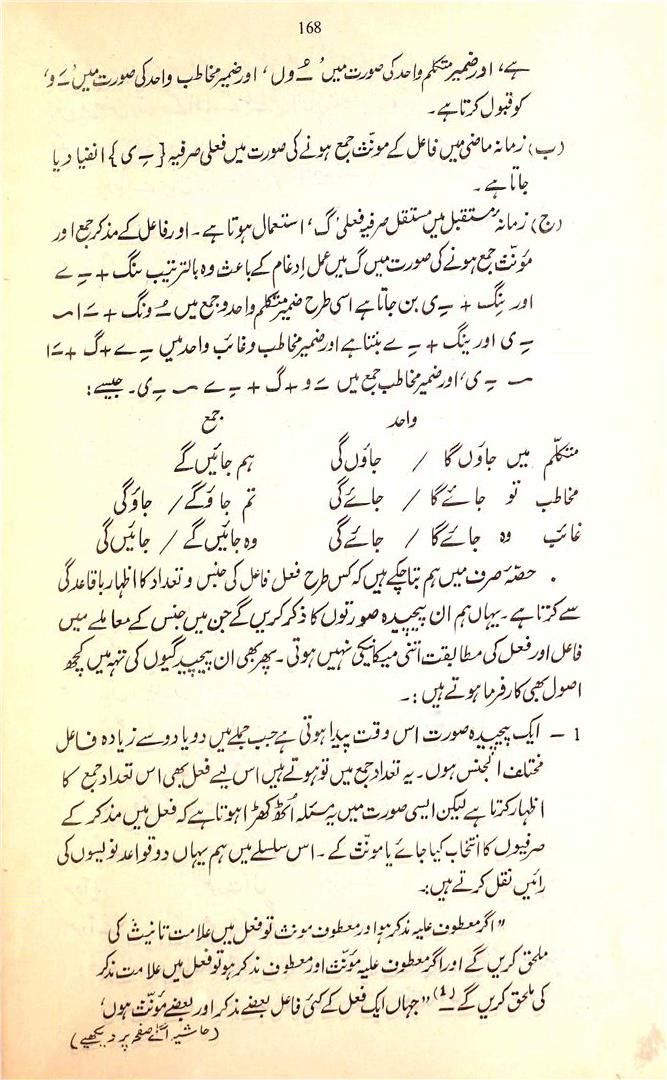 168
ہے، اور ضمیر متکلم واحد کی صورت میں ' ـُ وں '، اور ضمیر مخاطب واحد کی صورت میں ' ـَ و '،
کو قبول کرتا ہے۔
(ب) زمانہ ماضی میں فاعل کے مونّث جمع ہونے کی صورت میں فعلی صرفیہ {ـِ ی} انفیا دیا
جاتا ہے۔
(ج) زمانہ مستقبل میں مستقل صرفیہ فعلی 'گ' استعمال ہوتا ہے۔ اور فاعل کے مذکر جمع اور
مؤنّث جمع ہونے کی صورت میں گ میں عمل اِدغام کے باعث وہ بالترتیب ینگ + ـِ ے
اور ینگ + ـِ ی بن جاتا ہے اسی طرح ضمیر متکلم واحد و جمع میں ـُ ونگ + ـَ ا ~
ـِ ی اور ینگ + ـِ ے بنتا ہے اور ضمیر مخاطب و غائب واحد میں ـِ ے + گ + ـَ ا
~ ـِ ی، اور ضمیر مخاطب جمع میں ـَ و + گ + ـِ ے ~ ـِ ی۔ جیسے:
واحد جمع
متکلّم میں جاؤں گا / جاؤں گی ہم جائیں گے
مخاطب تو جائے گا / جائے گی تم جاؤ گے / جاؤ گی
غائب وہ جائے گا / جائے گی وہ جائیں گے / جائیں گی
. حصّہ صرف میں ہم بتا چکے ہیں کہ کس طرح فعل فاعل کی جنس و تعداد کا اظہار باقاعدگی
سے کرتا ہے۔ یہاں ہم ان پیچیدہ صورتوں کا ذکر کریں گے جن میں جنس کے معاملے میں
فاعل اور فعل کی مطابقت اتنی میکانیکی نہیں ہوتی۔ پھر بھی ان پیچیدگیوں کی تہہ میں کچھ
اصول بھی کارفرما ہوتے ہیں:۔
1 ۔ ایک پیچیدہ صورت اس وقت پیدا ہوتی ہے جب جملے میں دو یا دو سے زیادہ فاعل
مختلف الجنس ہوں۔ یہ تعداد جمع میں تو ہوتے ہیں اس لیے فعل بھی اس تعداد جمع کا
اظہار کرتا ہے لیکن ایسی صورت میں یہ مسئلہ اُٹھ کھڑا ہوتا ہے کہ فعل میں مذکر کے
صرفیوں کا انتخاب کیا جائے یا مونّث کے۔ اس سلسلے میں ہم یہاں دو قواعد نویسوں کی
رائیں نقل کرتے ہیں:۔
"اگر معطوف علیہ مذکر ہو اور معطوف مونث تو فعل میں علامت تانیث کی
ملحق کریں گے اور اگر معطوف علیہ مؤنّث اور معطوف مذکر ہو تو فعل میں علامت مذکر
کی ملحق کریں گے۔(۱) " جہاں ایک فعل کے کئی فاعل بعضے مذکر اور بعضے مؤنّث ہوں،
(حاشیہ اگلے صفحہ پر دیکھیے)